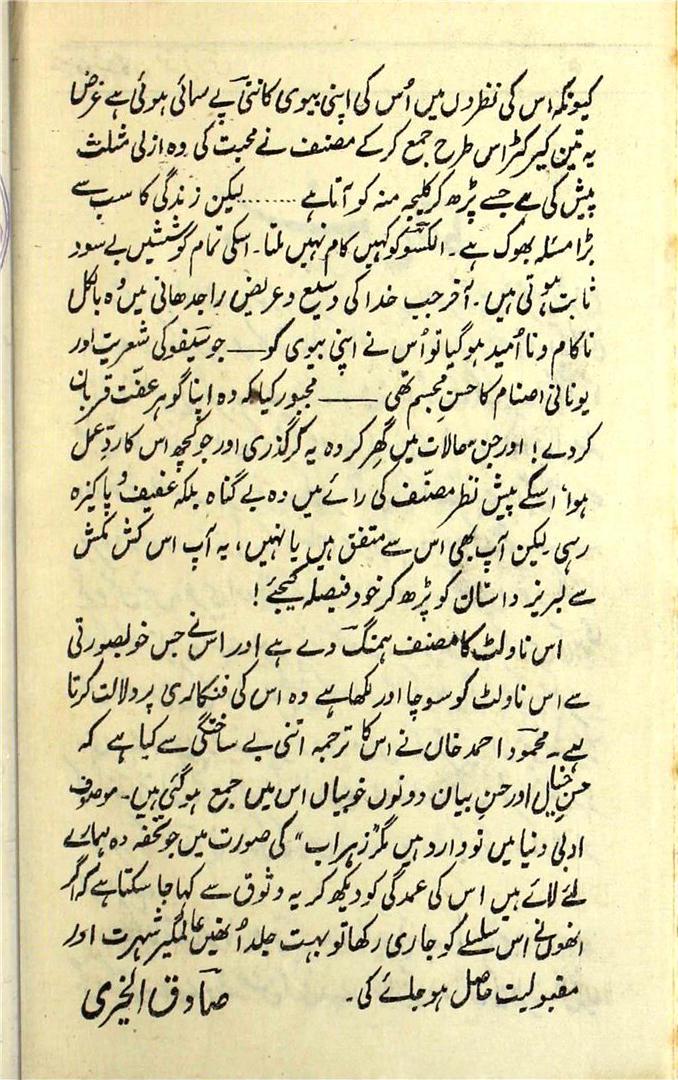 کیونکہ اس کی نظروں میں اُس کی اپنی بیوی کانتی پے سمائی ہوئی ہے غرض
یہ تین کیرکٹر اس طرح جمع کرکے مصنف نے محبت کی وہ ازلی مثلث
پیش کی ہے جسے پڑھ کر کلیجہ منہ کو آتا ہے ........ لیکن زندگی کا سب سے
بڑا مسئلہ بھوک ہے۔ الکسو کو کہیں کام نہیں ملتا۔ اسکی تمام کوششیں بے سود
ثابت ہوتی ہیں۔ آخر جب خدا کی وسیع و عریض راجدھانی میں وُہ بالکل
ناکام و نا اُمید ہو گیا تو اُس نے اپنی بیوی کو —— جو سیفو کی شعریت اور
یونانی اصنام کا حسنِ مجسم تھی —— مجبور کیا کہ وہ اپنا گوہرِ عفّت قربان
کر دے! اور جن حالات میں گھِر کر وہ یہ کر گذری اور جو کچھ اس کا ردِّ عمل
ہوا، اسکے پیش نظر مصنّف کی رائے میں وہ بے گناہ بلکہ عفیف و پاکیزہ
رہی لیکن آپ بھی اس سے متفق ہیں یا نہیں، یہ آپ اس کش مکش
سے لبریز داستان کو پڑھ کر خود فیصلہ کیجئے!
اس ناولٹ کا مصنف ہمنگ وے ہے اور اس نے جس خوبصورتی
سے اس ناولٹ کو سوچا اور لکھا ہے وہ اس کی فنکاری پر دلالت کرتا
ہے۔ محمود احمد خاں نے اس کا ترجمہ اتنی بے ساختگی سے کیا ہے کہ
حسنِ خیال اور حسنِ بیان دونوں خوبیاں اس میں جمع ہو گئی ہیں۔ موصوف
ادبی دنیا میں نو وارد ہیں مگر "زہراب" کی صورت میں جو تحفہ وہ ہمارے
لئے لائے ہیں اس کی عمدگی کو دیکھ کر یہ وثوق سے کہا جا سکتا ہے کہ اگر
انھوں نے اس سلسلے کو جاری رکھا تو بہت جلد اُنھیں عالمگیر شہرت اور
مقبولیت حاصل ہو جائے گی۔ صادق الخیری